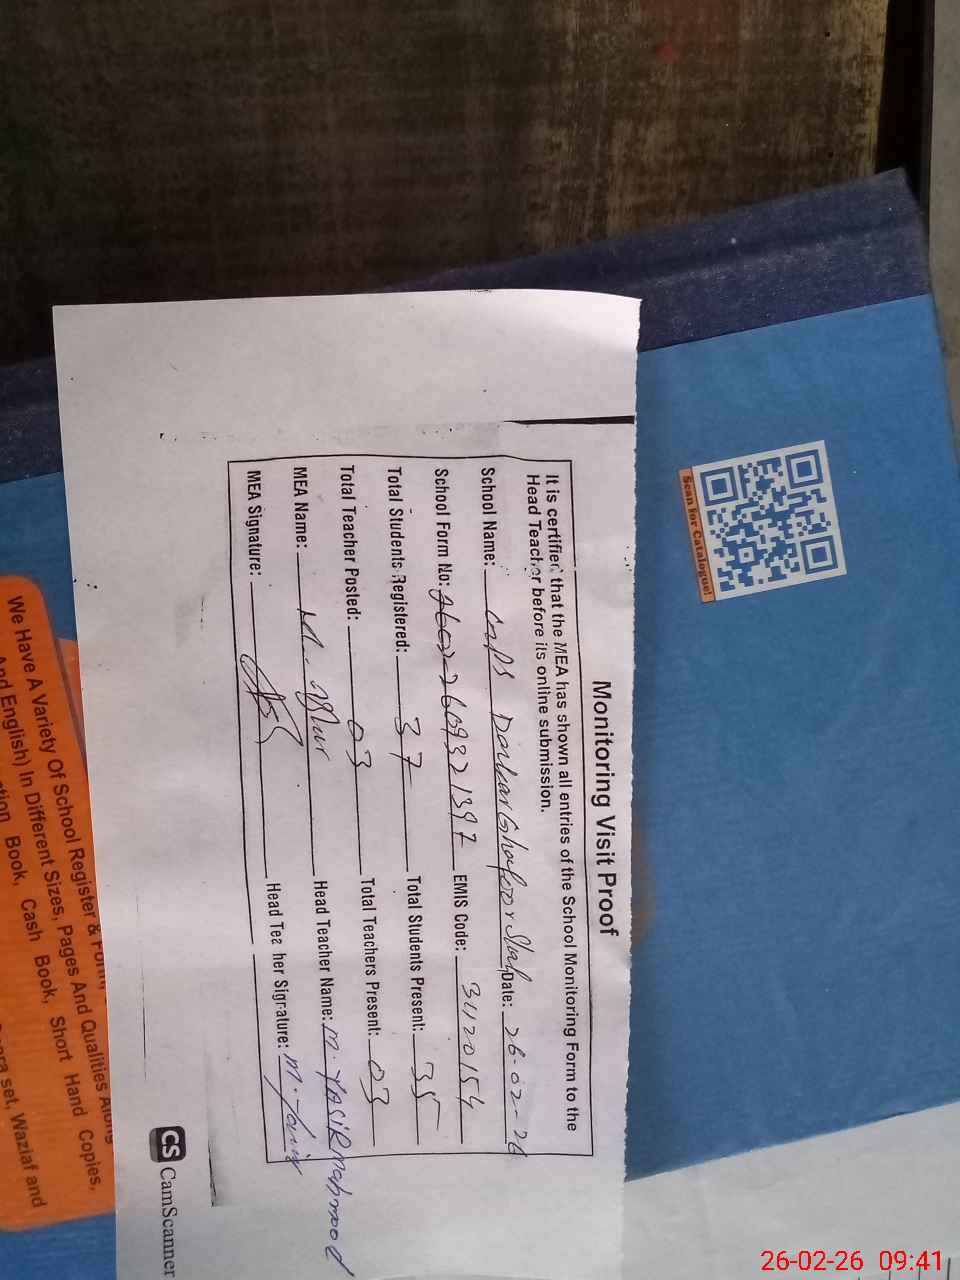 Monitoring Visit Proof
It is certified that the MEA has shown all entries of the School Monitoring Form to the
Head Teacher before its online submission.
School Name: GBPS Darbar Ghafoor Shah Date: 26-02-26
School Form No: EMIS Code: 31120154
Total Students Registered: 37 Total Students Present: 35
Total Teacher Posted: 03 Total Teachers Present: 03
MEA Name: Head Teacher Name: M. YASIR Mahmood
MEA Signature: Head Teacher Signature:
CS CamScanner
Scan for Catalogue!
We Have A Variety Of School Register &
And English) In Different Sizes, Pages And Qualities Along
Book, Cash Book, Short Hand Copies,
set, Waziaf and
26-02-26 09:41